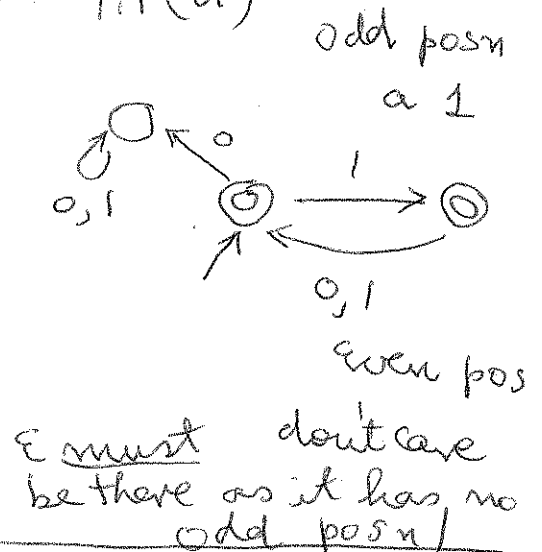 odd posn
a 1
0
1
0, 1
0, 1
Even pos
ε must don't care
be there as it has no
odd posn!